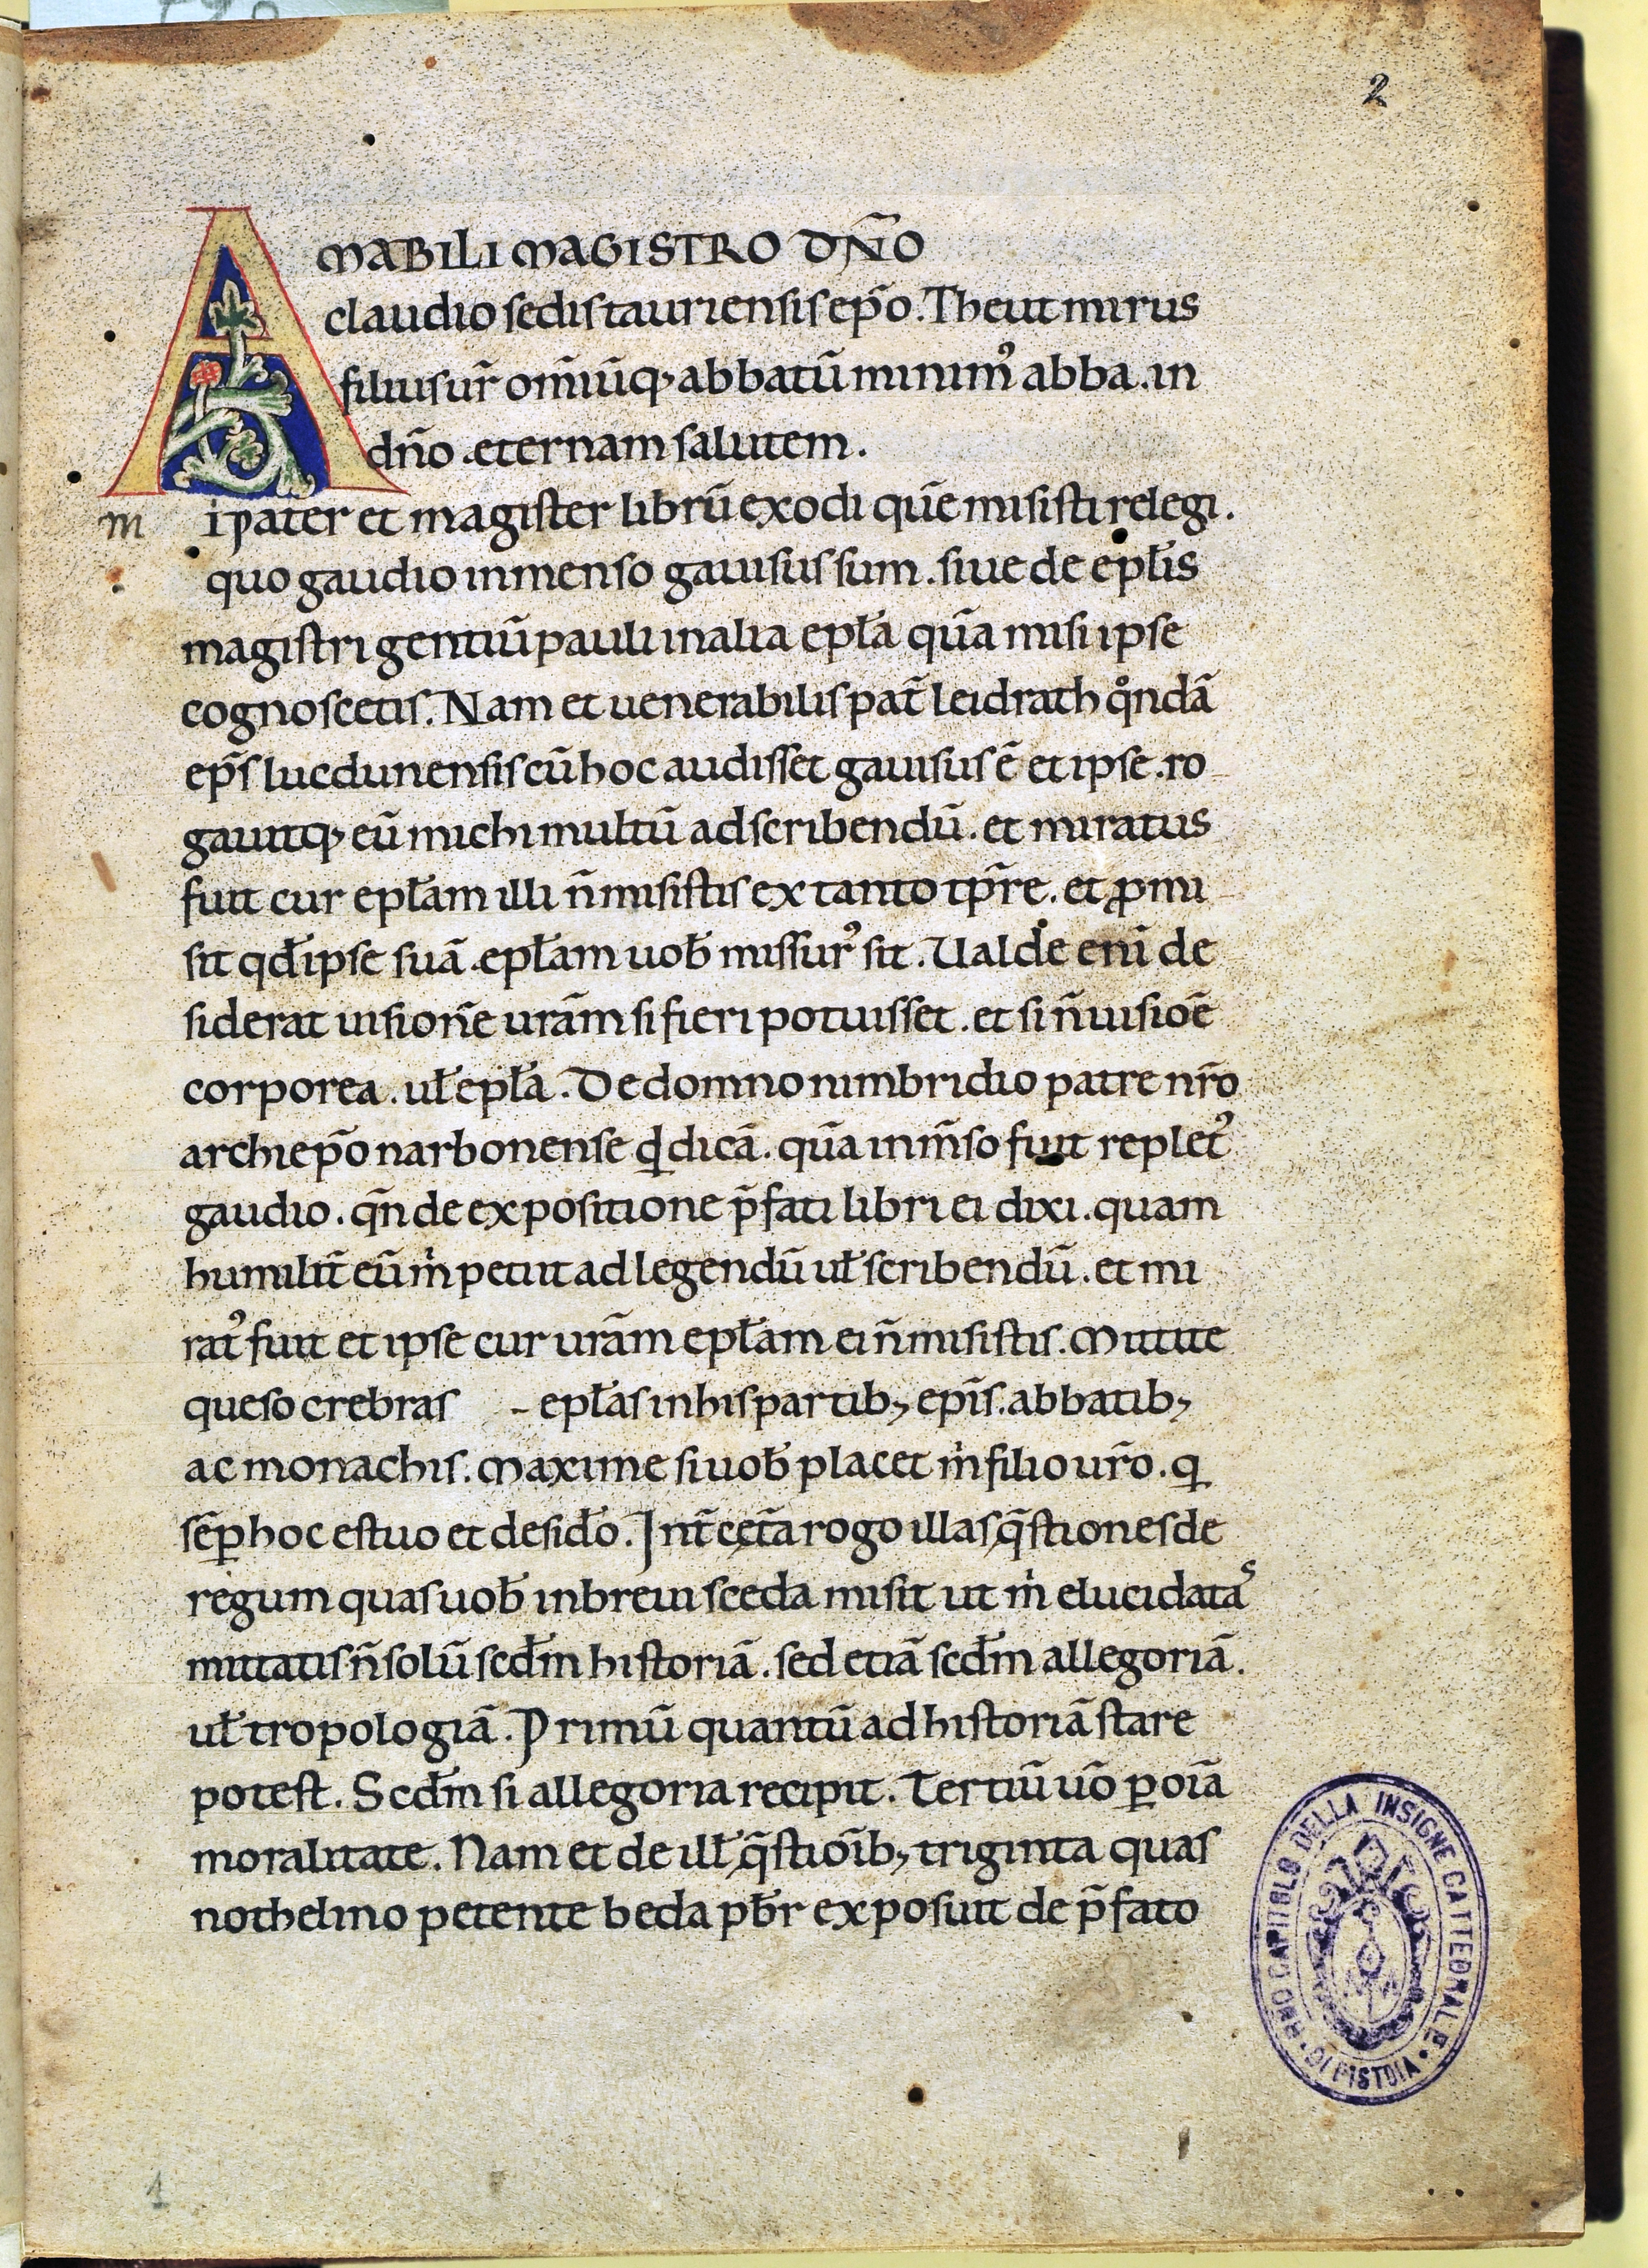 2
AMABILI MAGISTRO DÑO
claudio sedis tauriensis ep̃o. Theutmirus
filius ur̃ om̃iũq; abbatũ minimꝰ abba. in
dño. eternam salutem.
m i pater et magister librũ exodi quẽ misisti relegi.
quo gaudio inmenso gauisus sum. siue de epƚis
magistri gentiũ pauli in alia epƚa quã misi ipse
cognoscetis. Nam et uenerabilis pat̃ leidrath qͦndã
ep̃s lucdunensis cũ hoc audisset gauisus ẽ et ipse. ro
gauitq; eũ michi multũ ad scribendũ. et miratus
fuit cur epƚam illi ñ misistis ex tanto tp̃re. et ꝓmi
sit qđ ipse suã epƚam uob̃ missurꝰ sit. Ualde eni de
siderat uisionẽ urãm si fieri potuisset. et si ñ uisioẽ
corporea. uƚ epƚa. De domno nimbridio patre nr̃o
archiep̃o narbonense qͥd dicã. quã inm̃so fuit repletꝰ
gaudio. qñ de expositione p̃fati libri ei dixi. quam
humilit̃ eũ m̍ petiit ad legendũ uƚ scribendũ. et mi
ratꝰ fuit et ipse cur urãm epƚam ei ñ misistis. Mittite
queso crebras - epƚas in his partib; ep̃is. abbatib;
ac monachis. Maxime si uob̃ placet m̍ filio ur̃o. qͥ
sẽꝑ hoc estuo et desiđo. Int̃ cet̃a rogo illas q̃stiones de
regum quas uob̃ in breui sceda misit ut m̍ elucidataˢ
mittatis ñ solũ scđm historiã. sed etiã scđm allegoriã.
uƚ tropologiã. Primũ quantũ ad historiã stare
potest. Scđm si allegoria recipit. Tertiũ uõ ꝑ oĩa
moralitate. Nam et de illƚ q̃stioĩb; triginta quas
nothelmo petente beda pb̃r exposuit de p̃fato
RMO CAPITOLO DELLA INSIGNE CATTEDRALE DI PISTOIA
1